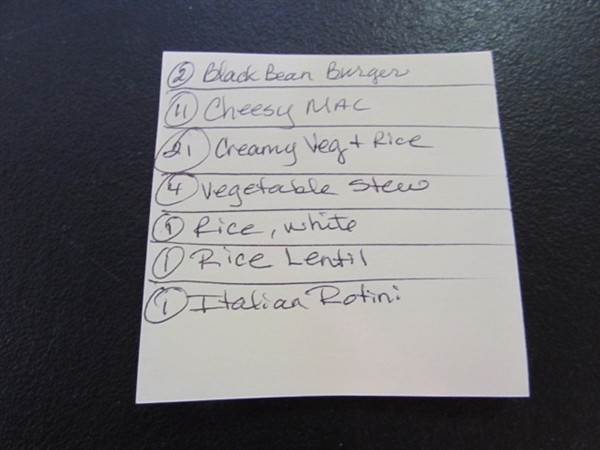 2 Black Bean Burger
11 Cheesy MAC
21 Creamy Veg + Rice
4 Vegetable Stew
9 Rice, white
1 Rice Lentil
1 Italian Rotini